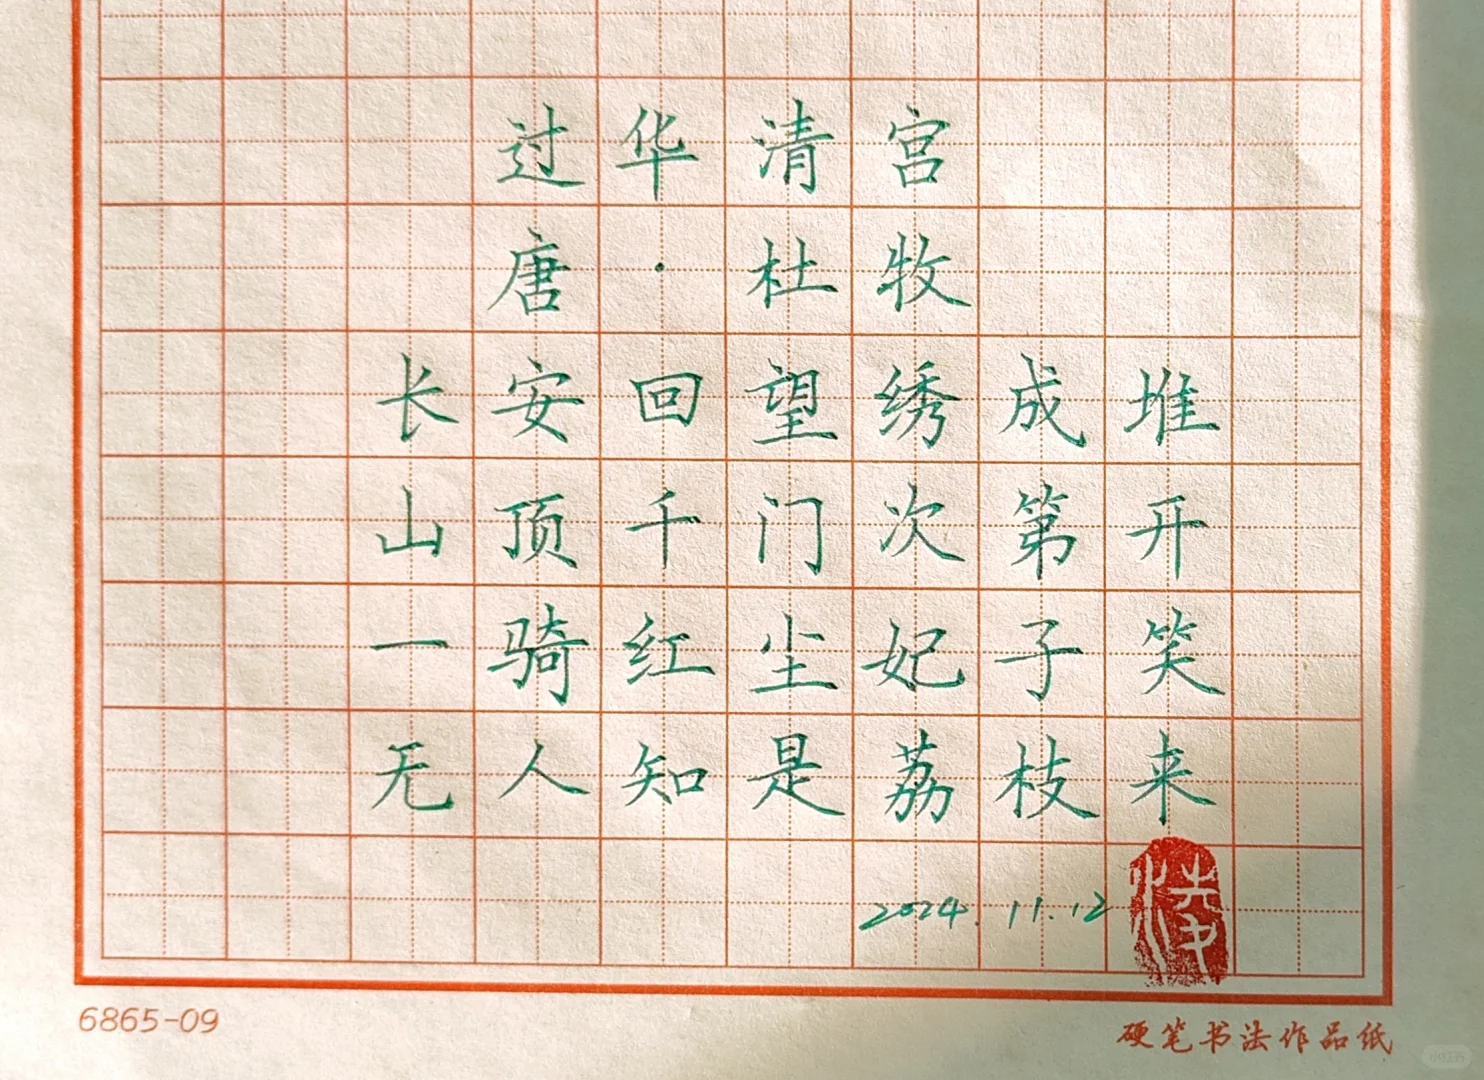 过华清宫
唐·杜牧
长安回望绣成堆
山顶千门次第开
一骑红尘妃子笑
无人知是荔枝来
2024.11.12
6865-09
硬笔书法作品纸
小红书